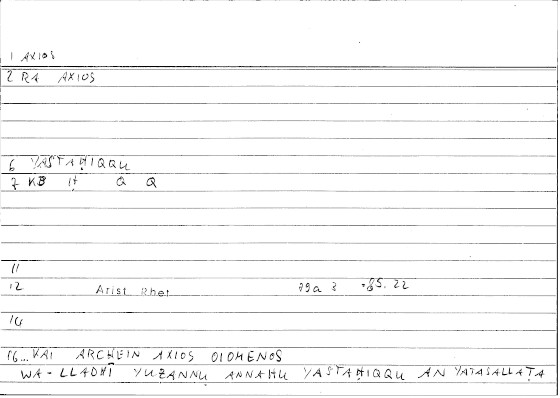 1 AXIOS
2 RA AXIOS
6 YASTAḤIQQU
7 KB Ḥ Q Q
11
12 Arist Rhet 79a 3 =85.22
14
16... KAI ARCHEIN AXIOS OIOMENOS
WA-LLADHĪ YUẒANNU ANNAHU YASTAḤIQQU AN YATASALLAṬA